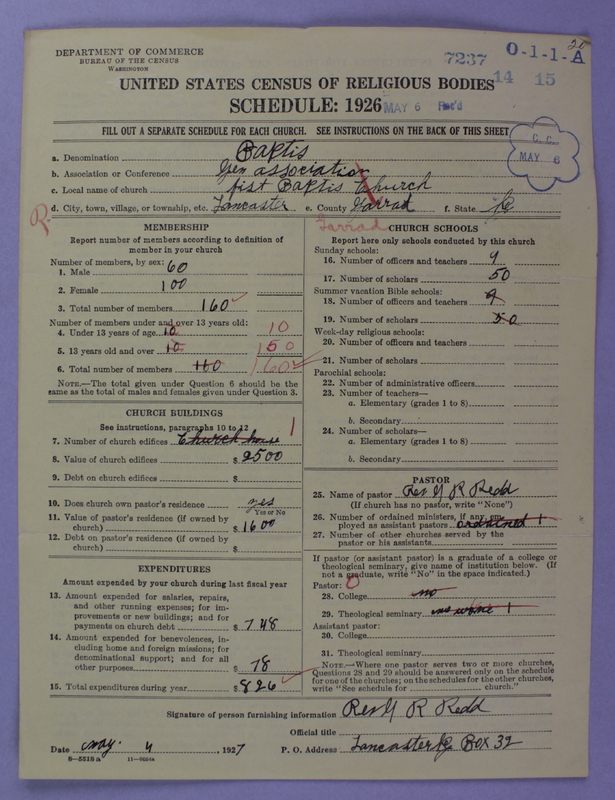 DEPARTMENT OF COMMERCE
BUREAU OF THE CENSUS
WASHINGTON
7237 0-1-1-A 20
14 15
UNITED STATES CENSUS OF RELIGIOUS BODIES
SCHEDULE: 1926 MAY 6 Rec'd
FILL OUT A SEPARATE SCHEDULE FOR EACH CHURCH. SEE INSTRUCTIONS ON THE BACK OF THIS SHEET
C. C.
MAY 6
a. Denomination Baptis
b. Association or Conference Gen association
c. Local name of church fist Baptis Church
d. City, town, village, or township, etc. Lancaster e. County Garrad f. State Ky
Garrad
MEMBERSHIP
Report number of members according to definition of member in your church
Number of members, by sex:
1. Male 60
2. Female 100
3. Total number of members 160
Number of members under and over 13 years old:
4. Under 13 years of age 10 10
5. 13 years old and over 10 150
6. Total number of members 110 160
NOTE.—The total given under Question 6 should be the same as the total of males and females given under Question 3.
CHURCH BUILDINGS
See instructions, paragraphs 10 to 12
7. Number of church edifices Church house 1
8. Value of church edifices $ 2500
9. Debt on church edifices $
10. Does church own pastor's residence yes
Yes or No
11. Value of pastor's residence (if owned by church) $ 1600
12. Debt on pastor's residence (if owned by church) $
EXPENDITURES
Amount expended by your church during last fiscal year
13. Amount expended for salaries, repairs, and other running expenses; for improvements or new buildings; and for payments on church debt $ 748
14. Amount expended for benevolences, including home and foreign missions; for denominational support; and for all other purposes $ 78
15. Total expenditures during year $ 826
CHURCH SCHOOLS
Report here only schools conducted by this church
Sunday schools:
16. Number of officers and teachers 9
17. Number of scholars 50
Summer vacation Bible schools:
18. Number of officers and teachers 9
19. Number of scholars 50
Week-day religious schools:
20. Number of officers and teachers
21. Number of scholars
Parochial schools:
22. Number of administrative officers
23. Number of teachers—
a. Elementary (grades 1 to 8)
b. Secondary
24. Number of scholars—
a. Elementary (grades 1 to 8)
b. Secondary
PASTOR
25. Name of pastor Rev G R Redd
(If church has no pastor, write "None")
26. Number of ordained ministers, if any, employed as assistant pastors ordained 1
27. Number of other churches served by the pastor or his assistants
If pastor (or assistant pastor) is a graduate of a college or theological seminary, give name of institution below. (If not a graduate, write "No" in the space indicated.)
Pastor: 0
28. College no
29. Theological seminary 1
Assistant pastor:
30. College
31. Theological seminary
NOTE.—Where one pastor serves two or more churches, Questions 28 and 29 should be answered only on the schedule for one of the churches; on the schedules for the other churches, write "See schedule for church."
Signature of person furnishing information Rev G R Redd
Official title
Date may. 4 1927 P. O. Address Lancaster Ky Box 32
8—5518 a 11—9664a